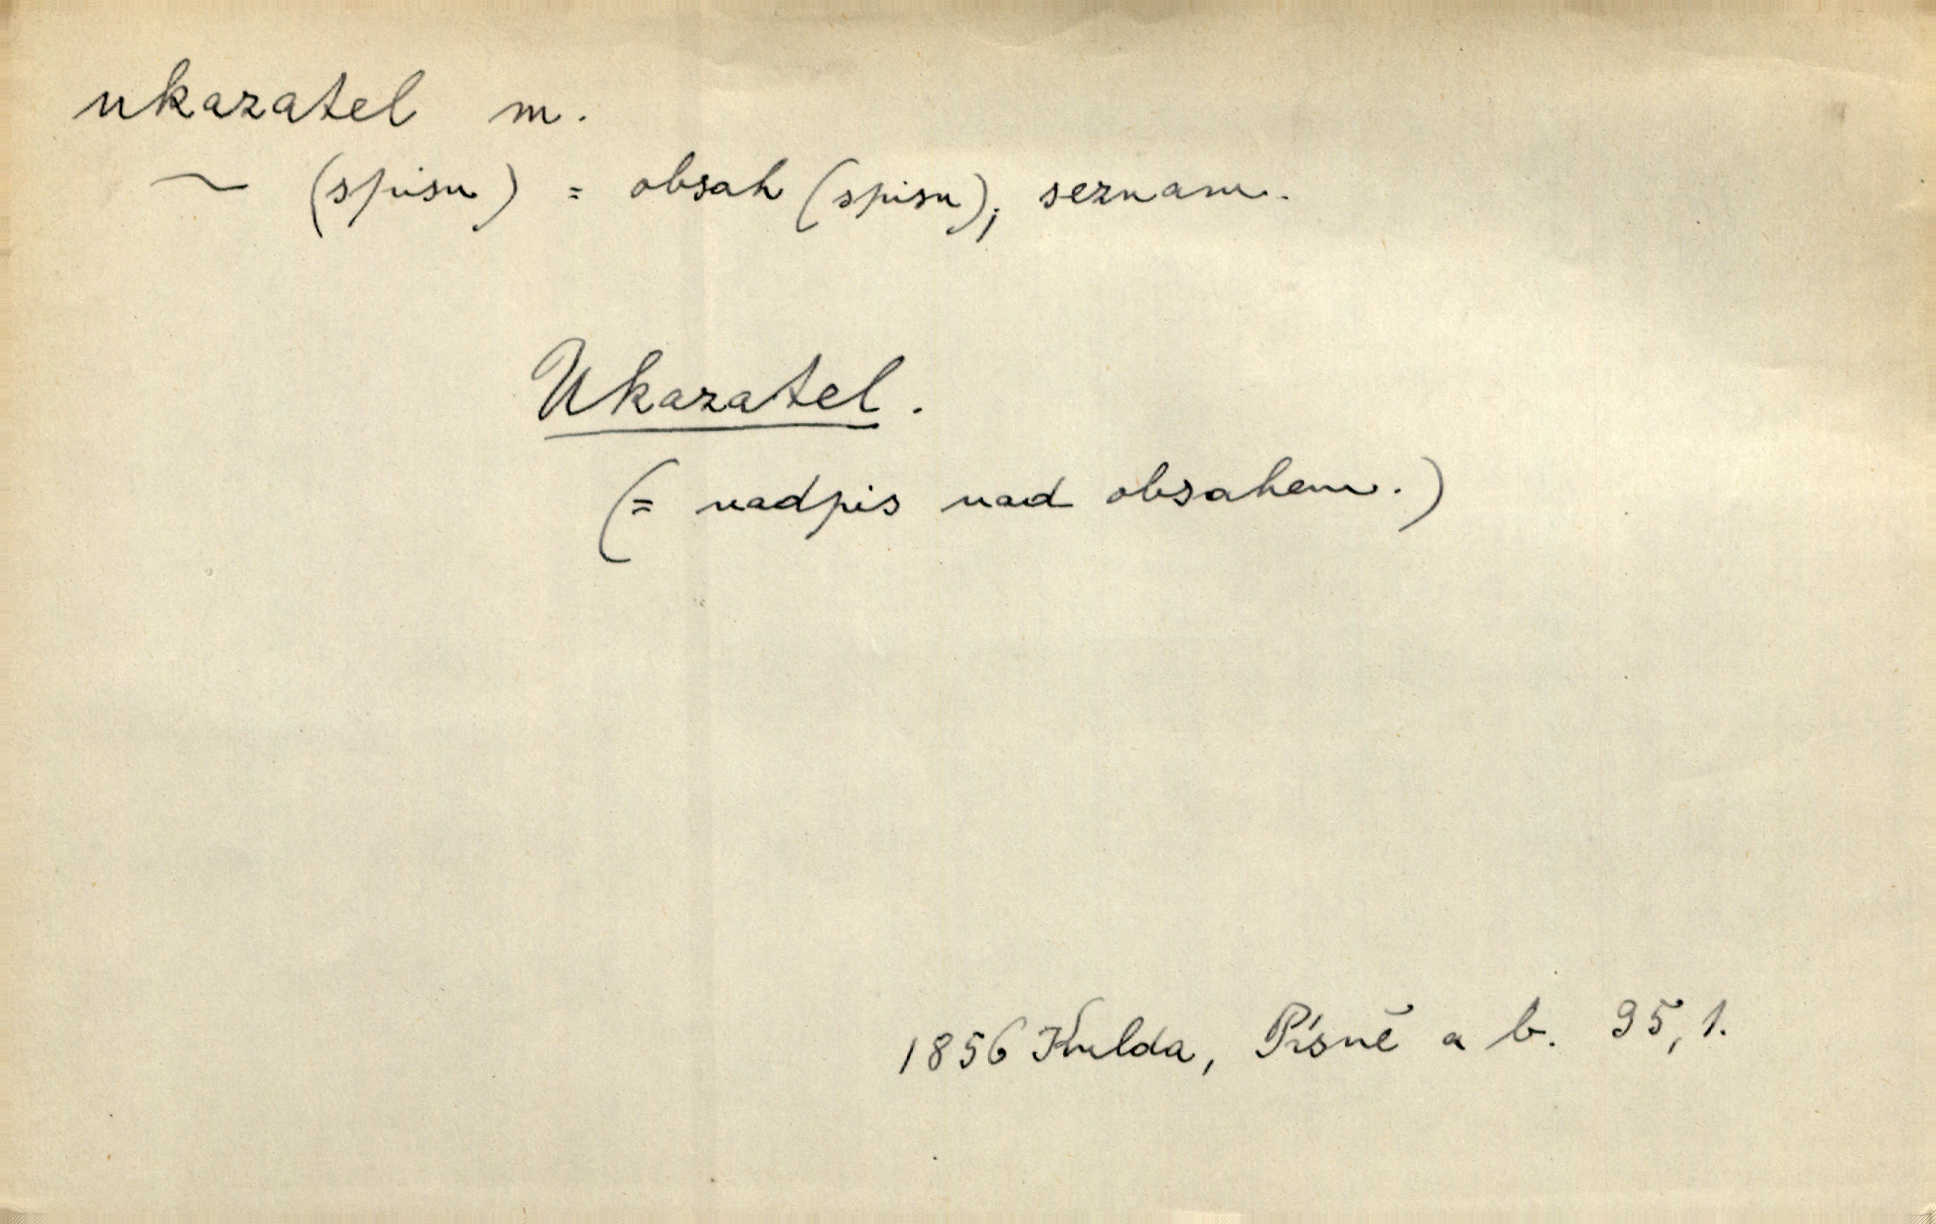 ukazatel m.
~ (spisu) = obsah (spisu), seznam.
Ukazatel.
(= nadpis nad obsahem.)
1856 Kulda, Písně a b. 95, 1.